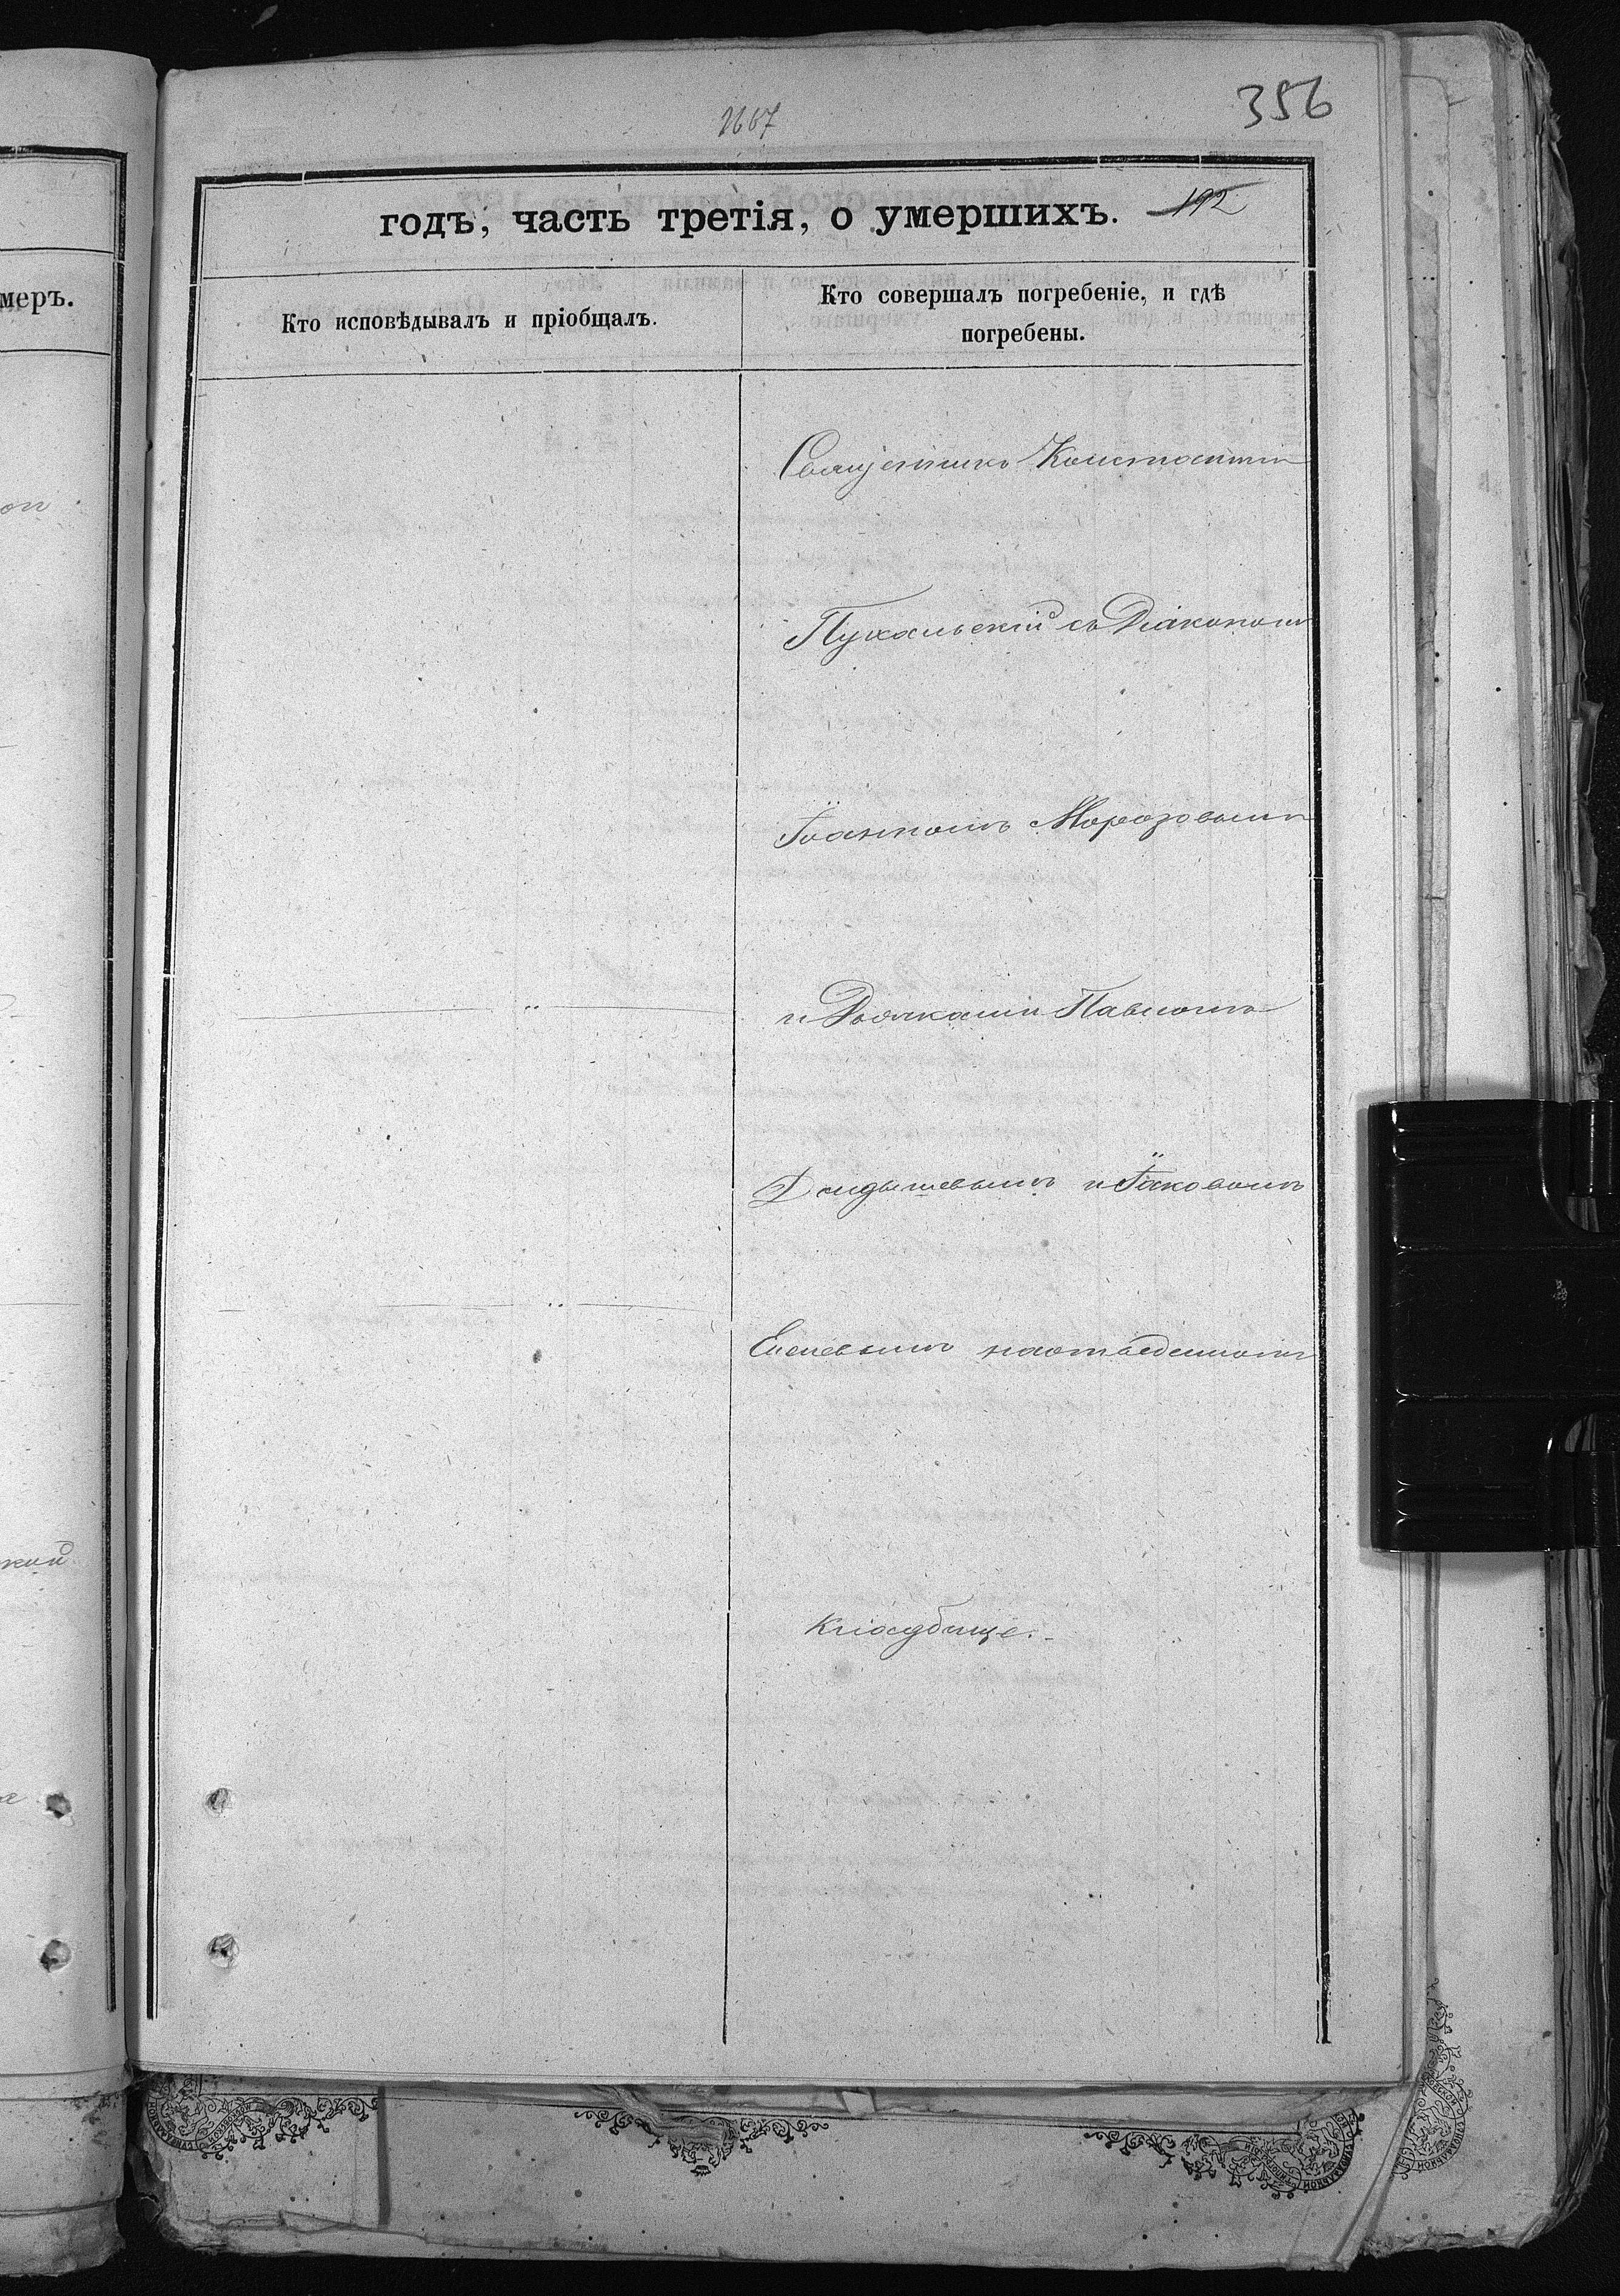 356
1667
годъ, часть третія, о умершихъ. 192
меръ.
Кто исповѣдывалъ и пріобщалъ.
Кто совершалъ погребеніе, и гдѣ
погребены.
Священникъ Константинъ
Пухальскій съ Діакономъ
Іоанномъ Морозовымъ
и Дьячками Павломъ
и Іаковомъ
на отведенномъ
кладбище.
кий